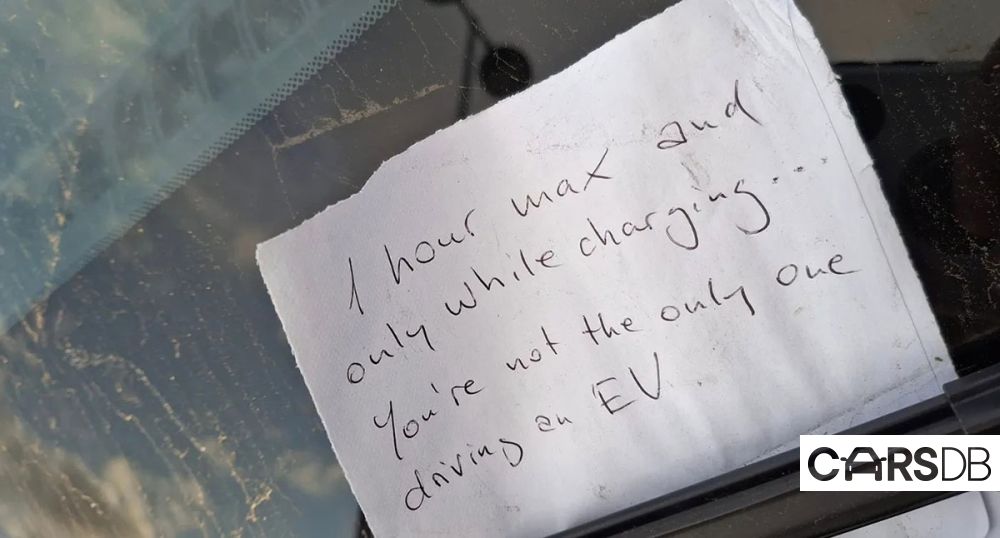 1 hour max and
only while charging...
You're not the only one
driving an EV.
CARSDB